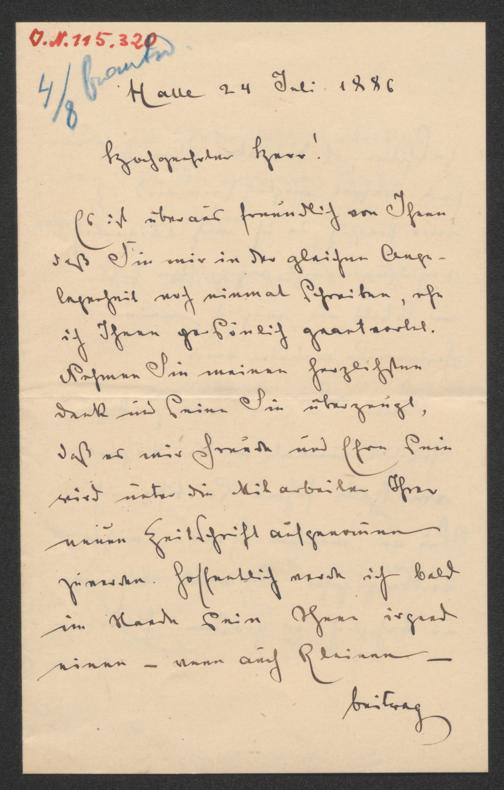 J.N. 115.320
4/8 beantw.
Halle 24 Juli 1886
Hochgeehrter Herr!
Es ist überaus freundlich von Ihnen
daß Sie mir in der gleichen Ange-
legenheit noch einmal schreiben, ehe
ich Ihnen persönlich geantwortet.
Nehmen Sie meinen herzlichsten
Dank und seien Sie überzeugt,
daß es mir Freude und Ehre sein
wird unter die Mitarbeiter Ihrer
neuen Zeitschrift aufgenommen
zu werden. Hoffentlich werde ich bald
im Stande sein Ihnen irgend
einen – wenn auch kleinen –
beitrag